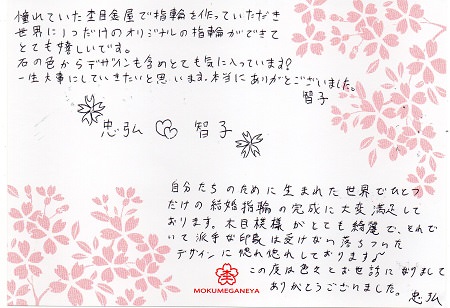 憧れていた杢目金屋で指輪を作っていただき
世界に1つだけのオリジナルの指輪ができて
とても嬉しいです。
石の色からデザインも含めとても気に入っています♪
一生大事にしていきたいと思います。本当にありがとうございました。
智子
忠弘 智子
自分たちのために生まれた世界でひとつ
だけの結婚指輪の完成に大変満足して
おります。木目模様がとても綺麗で、それで
いて派手な印象は受けない落ちついた
デザインに惚れ惚れしております♪
この度は色々とお世話になりまして
ありがとうございました。 忠弘
MOKUMEGANEYA